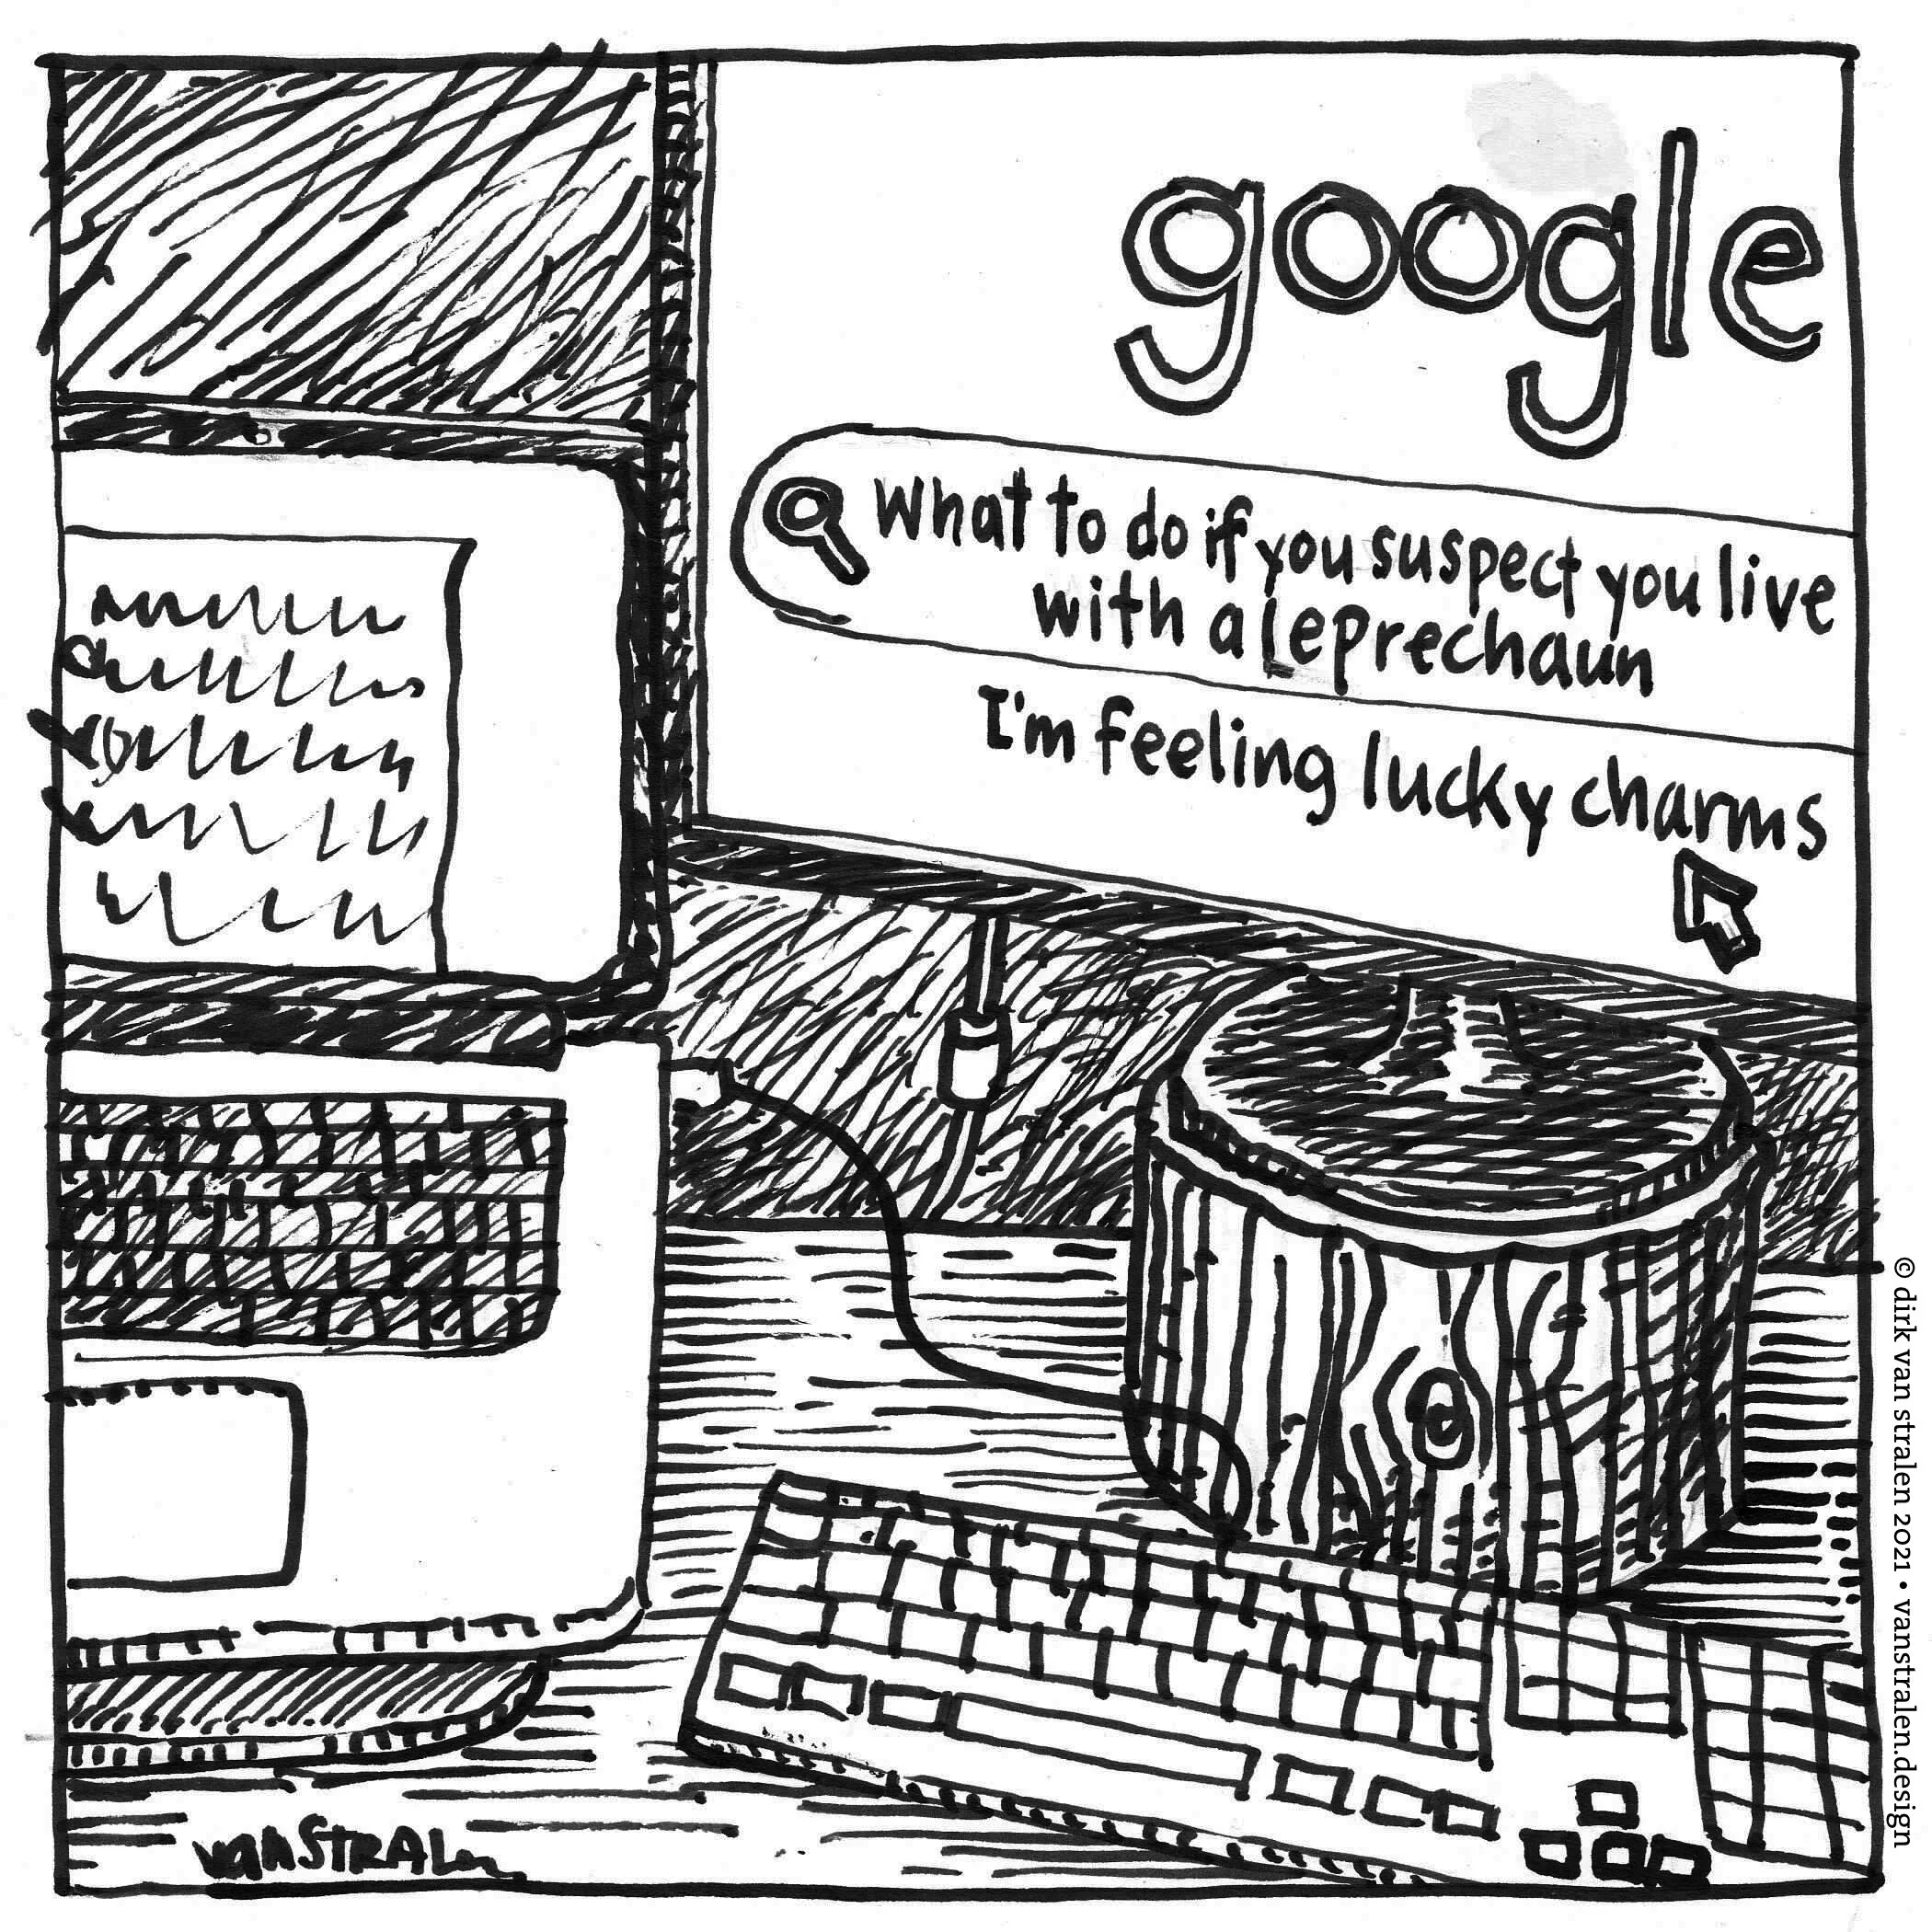 google
What to do if you suspect you live
with a Leprechaun
I'm feeling lucky charms
vanSTRALen
© dirk van stralen 2021 • vanstralen.design